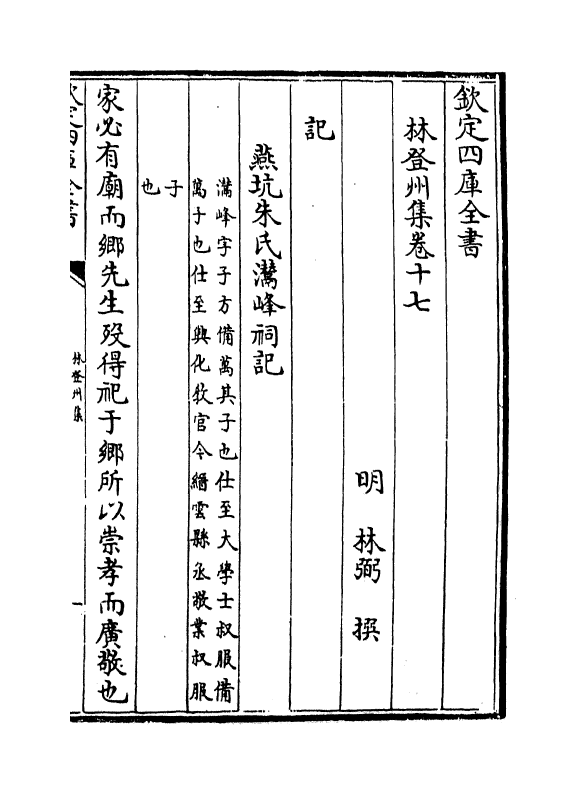 欽定四庫全書
林登州集卷十七
明　林弼　撰
記
燕坑朱氏灊峰祠記
灊峰字子方備萬其子也仕至大學士叔服備
萬子也仕至興化教官今縉雲縣丞敬業叔服
子
也
家必有廟而鄉先生歿得祀于鄉所以崇孝而廣敬也
欽定四庫全書
林登州集
一